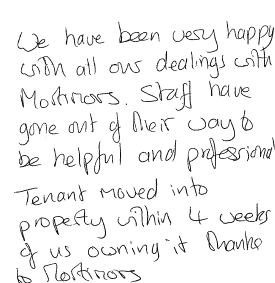 We have been very happy
with all our dealings with
Mortimors. Staff have
gone out of their way to
be helpful and professional
Tenant moved into
property within 4 weeks
of us owning it Thanks
to Mortimors